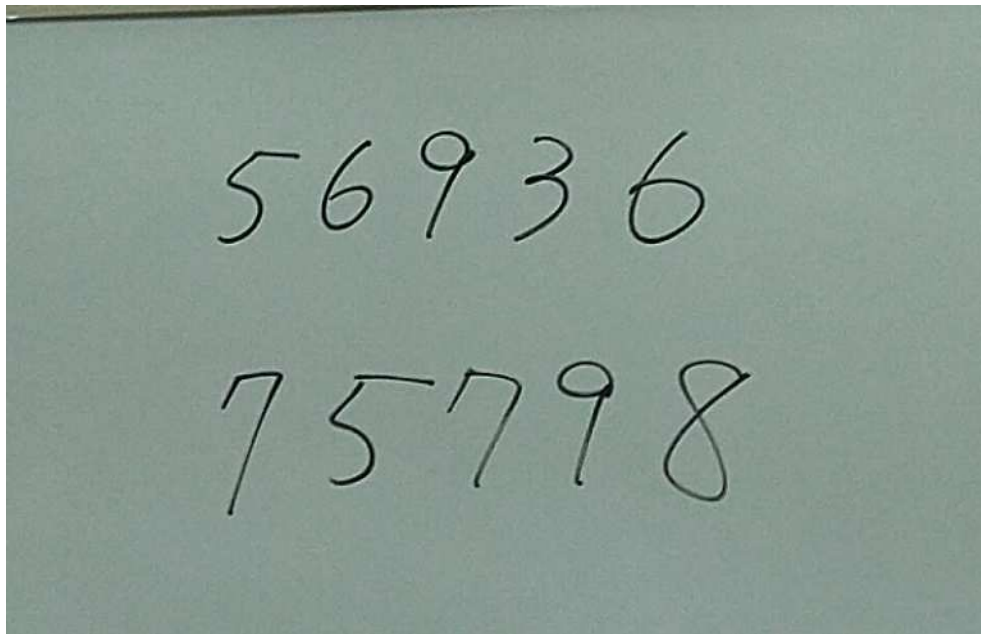 56936
75798